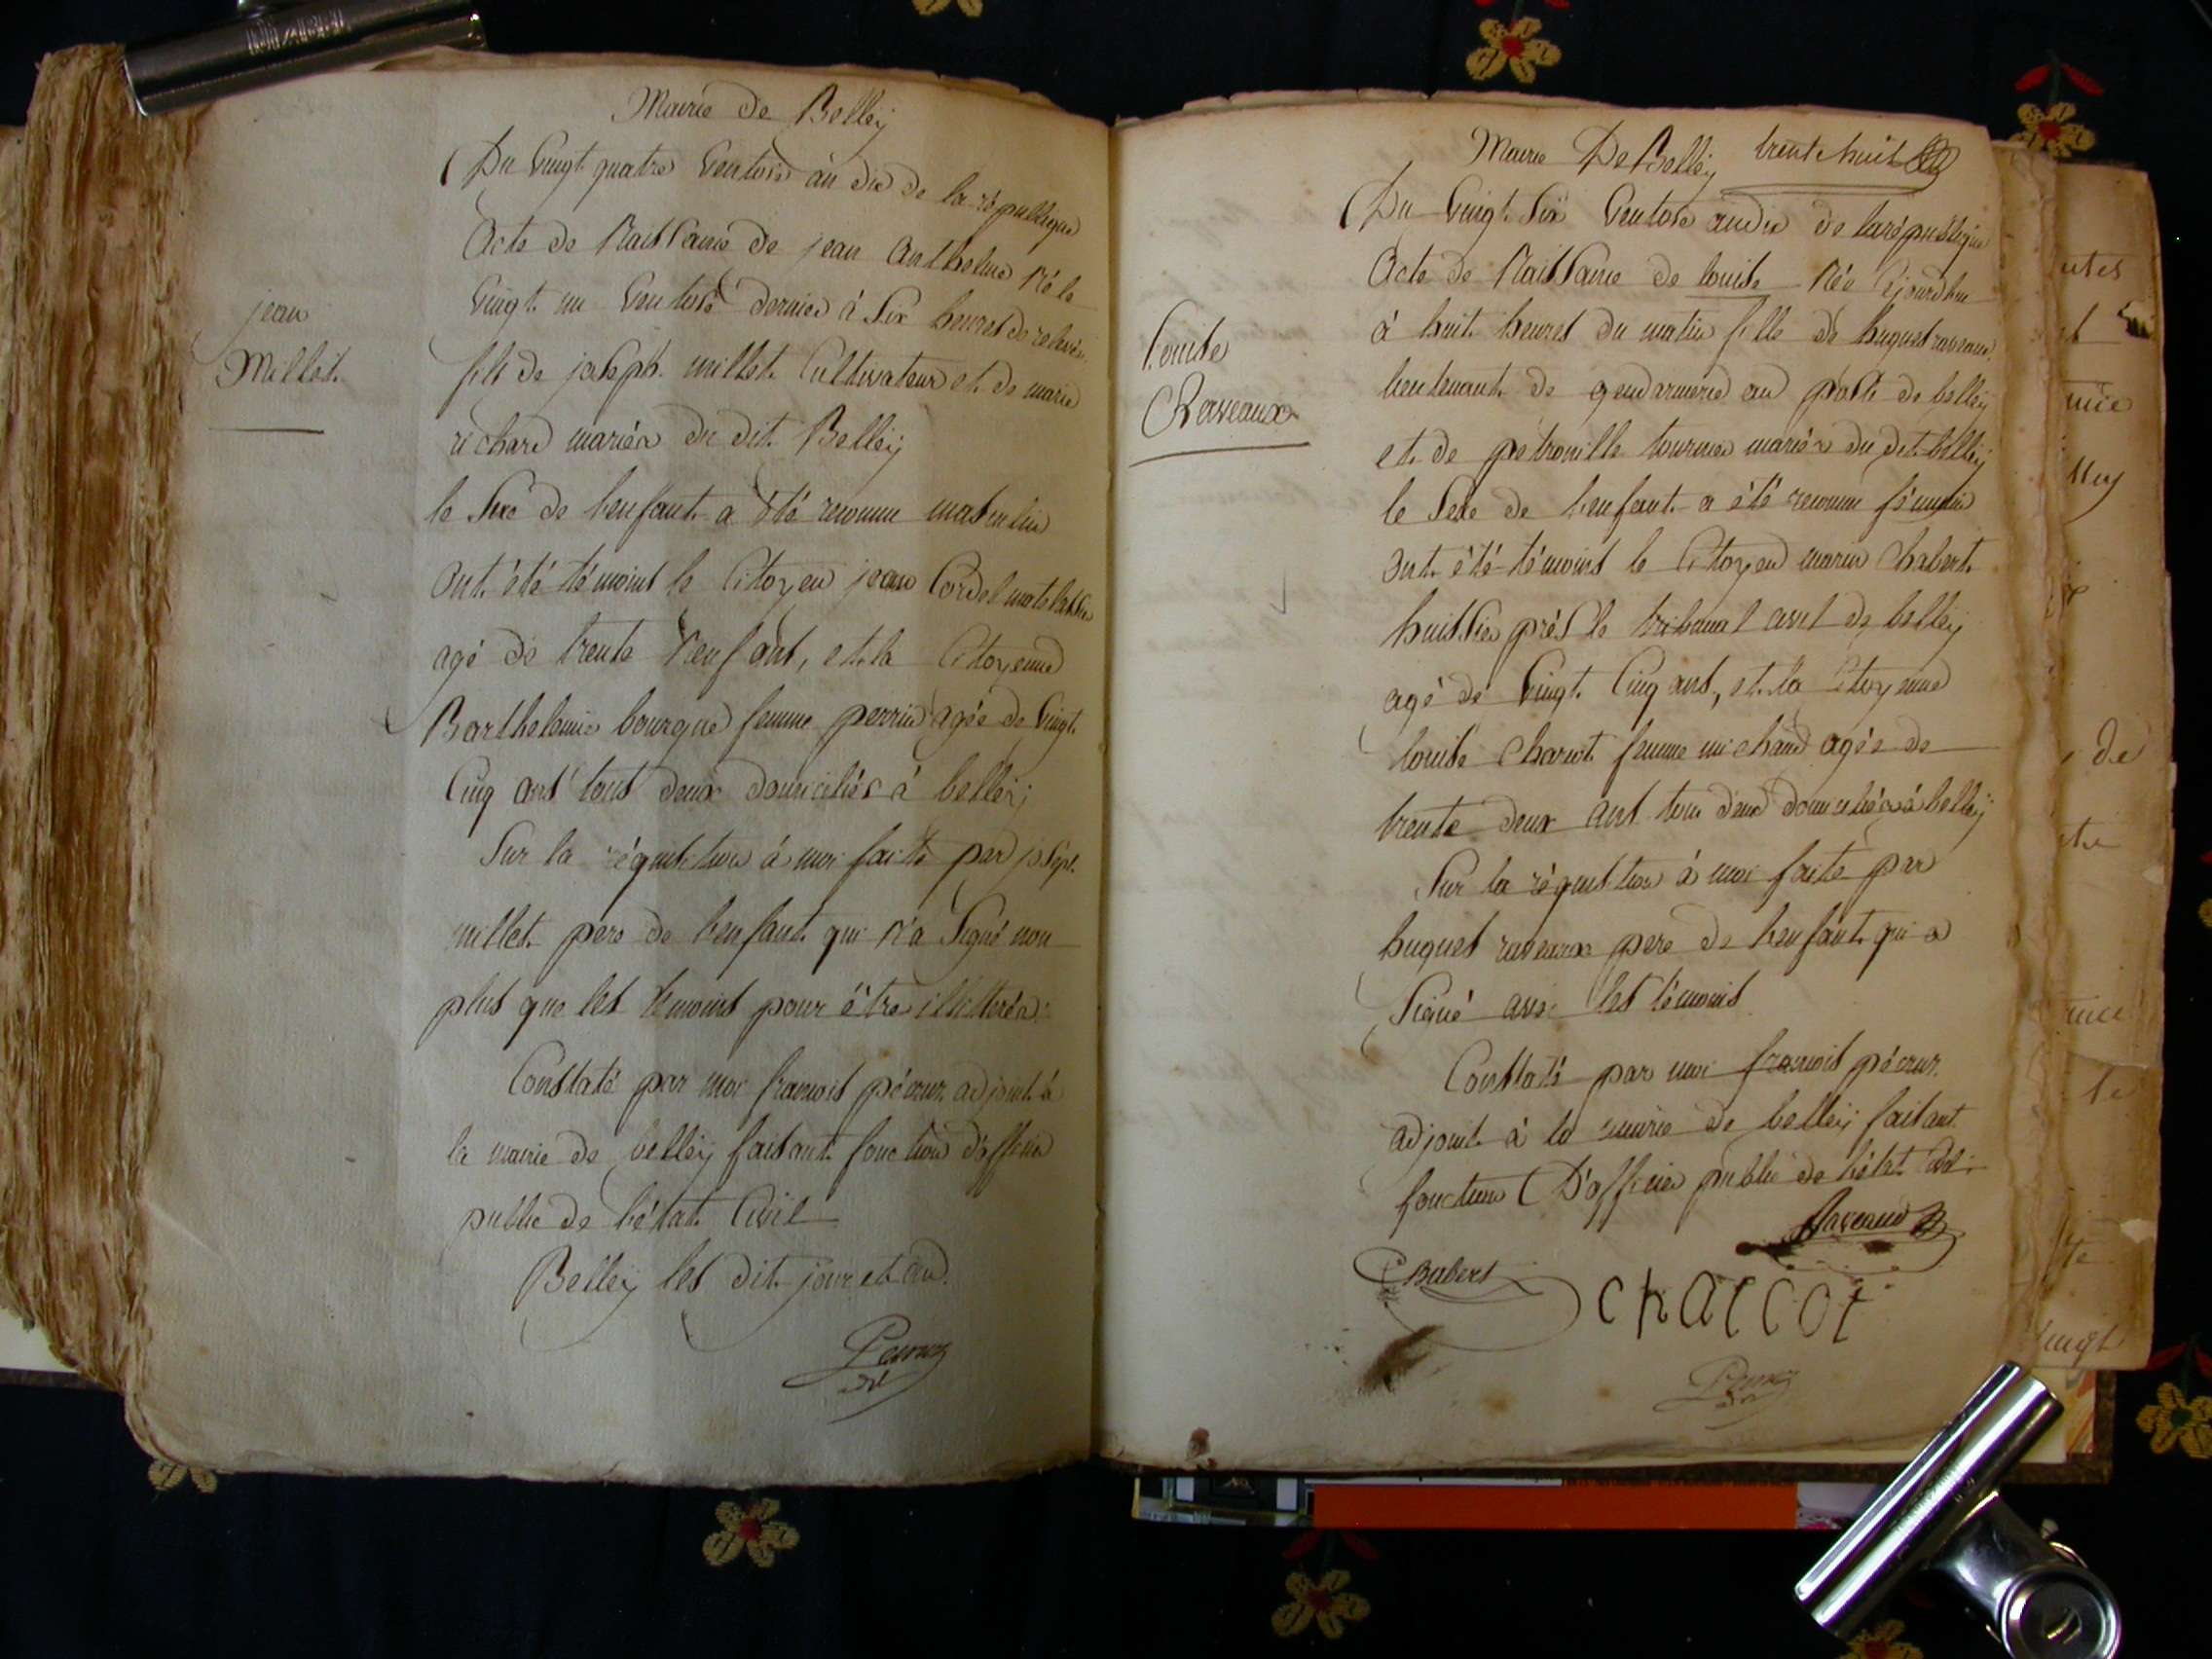 Mairie de Belleÿ
Du Vingt quatre Ventose an dix de la république
Acte de Naissance de jean anthelme Né le
Vingt un Ventose dernier à Six heures de relevée
jean
Millet
fils de joseph millet Cultivateur et de marie
richard mariés du dit Belleÿ
le Sexe de lenfant a été reconnu masculin
Ont été témoins le Citoyen jean Cordel matelassier
agé de trente Neuf ans, et la Citoyenne
Barthelemie bourgue femme perrin agée de Vingt
Cinq ans tous deux domiciliés à belleÿ
Sur la réquisition à moi faite par joseph
millet pere de lenfant qui n'a Signé non
plus que les témoins pour être illitterés
Constaté par moi françois pécour adjoint à
la mairie de belleÿ faisant fonction d'officier
public de l'état Civil
Belleÿ les dit jour et an
Mairie De Belleÿ trente huit
Du Vingt Six Ventose an dix de la république
Acte de Naissance de louise Née Cejourdhui
à huit heures du matin fille de hugues raveaux
Louise
Raveaux
lieutenant de gendarmerie au poste de belleÿ
et de petronille tournier mariés du dit belleÿ
le Sexe de lenfant a été reconnu féminin
Ont été témoins le Citoyen marin Chabert
huissier près le tribunal civil de belleÿ
agé de Vingt Cinq ans, et la Citoyenne
louise Charcot femme michaud agée de
trente deux ans tous deux domiciliés à belleÿ
Sur la réquisition à moi faite par
hugues raveaux pere de lenfant qui a
Signé avec les témoins
Constaté par moi françois pécour
adjoint à la mairie de belleÿ faisant
fonction D'officier public de l'état Civil
Raveaux
Chabert
charcot